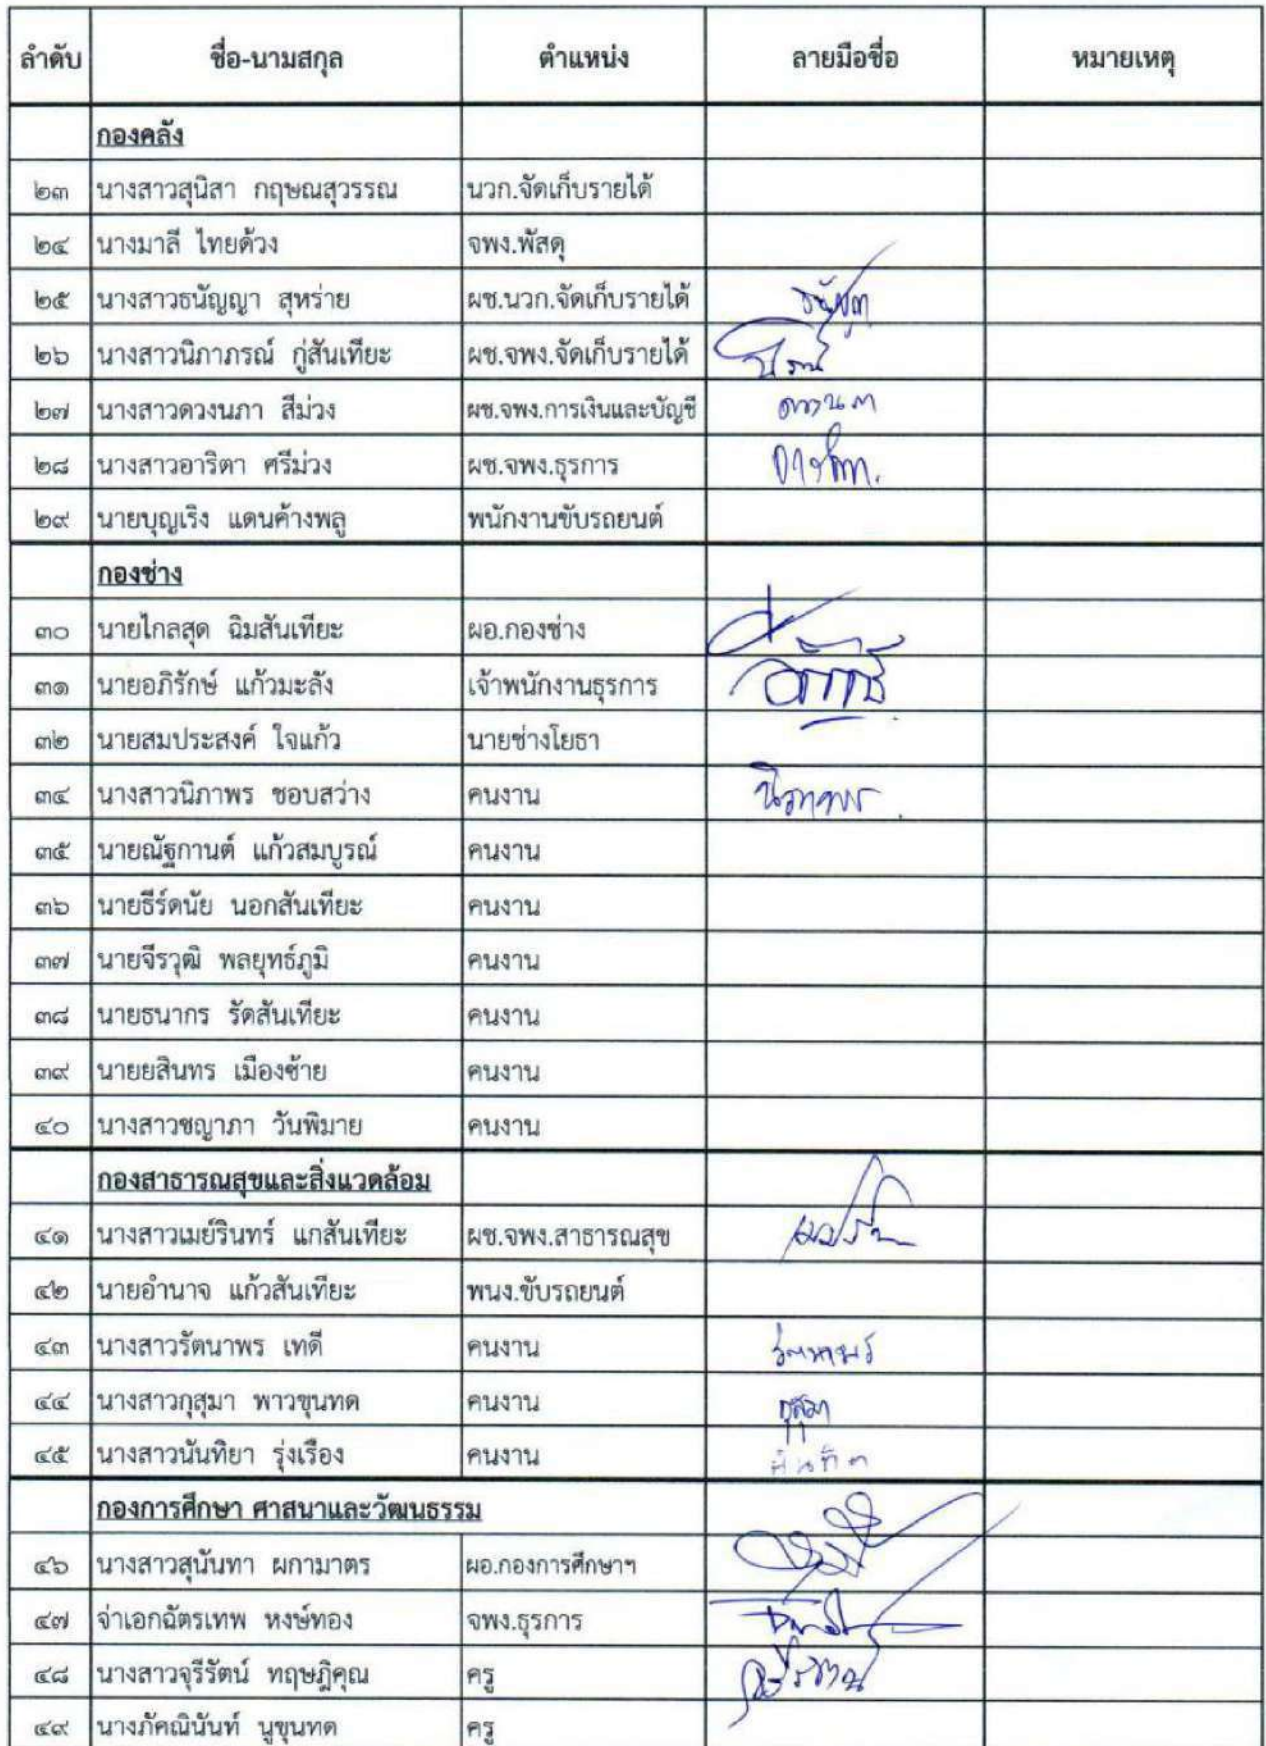 ลำดับ ชื่อ-นามสกุล ตำแหน่ง ลายมือชื่อ หมายเหตุ
กองคลัง
๒๓ นางสาวสุนิสา กฤษณสุวรรณ นวก.จัดเก็บรายได้
๒๔ นางมาลี ไทยด้วง จพง.พัสดุ
๒๕ นางสาวธนัญญา สุหร่าย ผช.นวก.จัดเก็บรายได้
๒๖ นางสาวนิภาภรณ์ กู่สันเทียะ ผช.จพง.จัดเก็บรายได้
๒๗ นางสาวดวงนภา สีม่วง ผช.จพง.การเงินและบัญชี
๒๘ นางสาวอาริตา ศรีม่วง ผช.จพง.ธุรการ
๒๙ นายบุญเริง แดนค้างพลู พนักงานขับรถยนต์
กองช่าง
๓๐ นายไกลสุด ฉิมสันเทียะ ผอ.กองช่าง
๓๑ นายอภิรักษ์ แก้วมะลัง เจ้าพนักงานธุรการ
๓๒ นายสมประสงค์ ใจแก้ว นายช่างโยธา
๓๔ นางสาวนิภาพร ชอบสว่าง คนงาน นิภาพร
๓๕ นายณัฐกานต์ แก้วสมบูรณ์ คนงาน
๓๖ นายธีร์ดนัย นอกสันเทียะ คนงาน
๓๗ นายจีรวุฒิ พลยุทธ์ภูมิ คนงาน
๓๘ นายธนากร รัดสันเทียะ คนงาน
๓๙ นายยสินทร เมืองซ้าย คนงาน
๔๐ นางสาวชญาภา วันพิมาย คนงาน
กองสาธารณสุขและสิ่งแวดล้อม
๔๑ นางสาวเมย์รินทร์ แกสันเทียะ ผช.จพง.สาธารณสุข
๔๒ นายอำนาจ แก้วสันเทียะ พนง.ขับรถยนต์
๔๓ นางสาวรัตนาพร เทดี คนงาน รัตนาพร
๔๔ นางสาวกุสุมา พาวขุนทด คนงาน กุสุมา
๔๕ นางสาวนันทิยา รุ่งเรือง คนงาน
กองการศึกษา ศาสนาและวัฒนธรรม
๔๖ นางสาวสุนันทา ผกามาตร ผอ.กองการศึกษาฯ
๔๗ จ่าเอกฉัตรเทพ หงษ์ทอง จพง.ธุรการ
๔๘ นางสาวจุรีรัตน์ ทฤษฎิคุณ ครู
๔๙ นางภัคณินันท์ นูขุนทด ครู